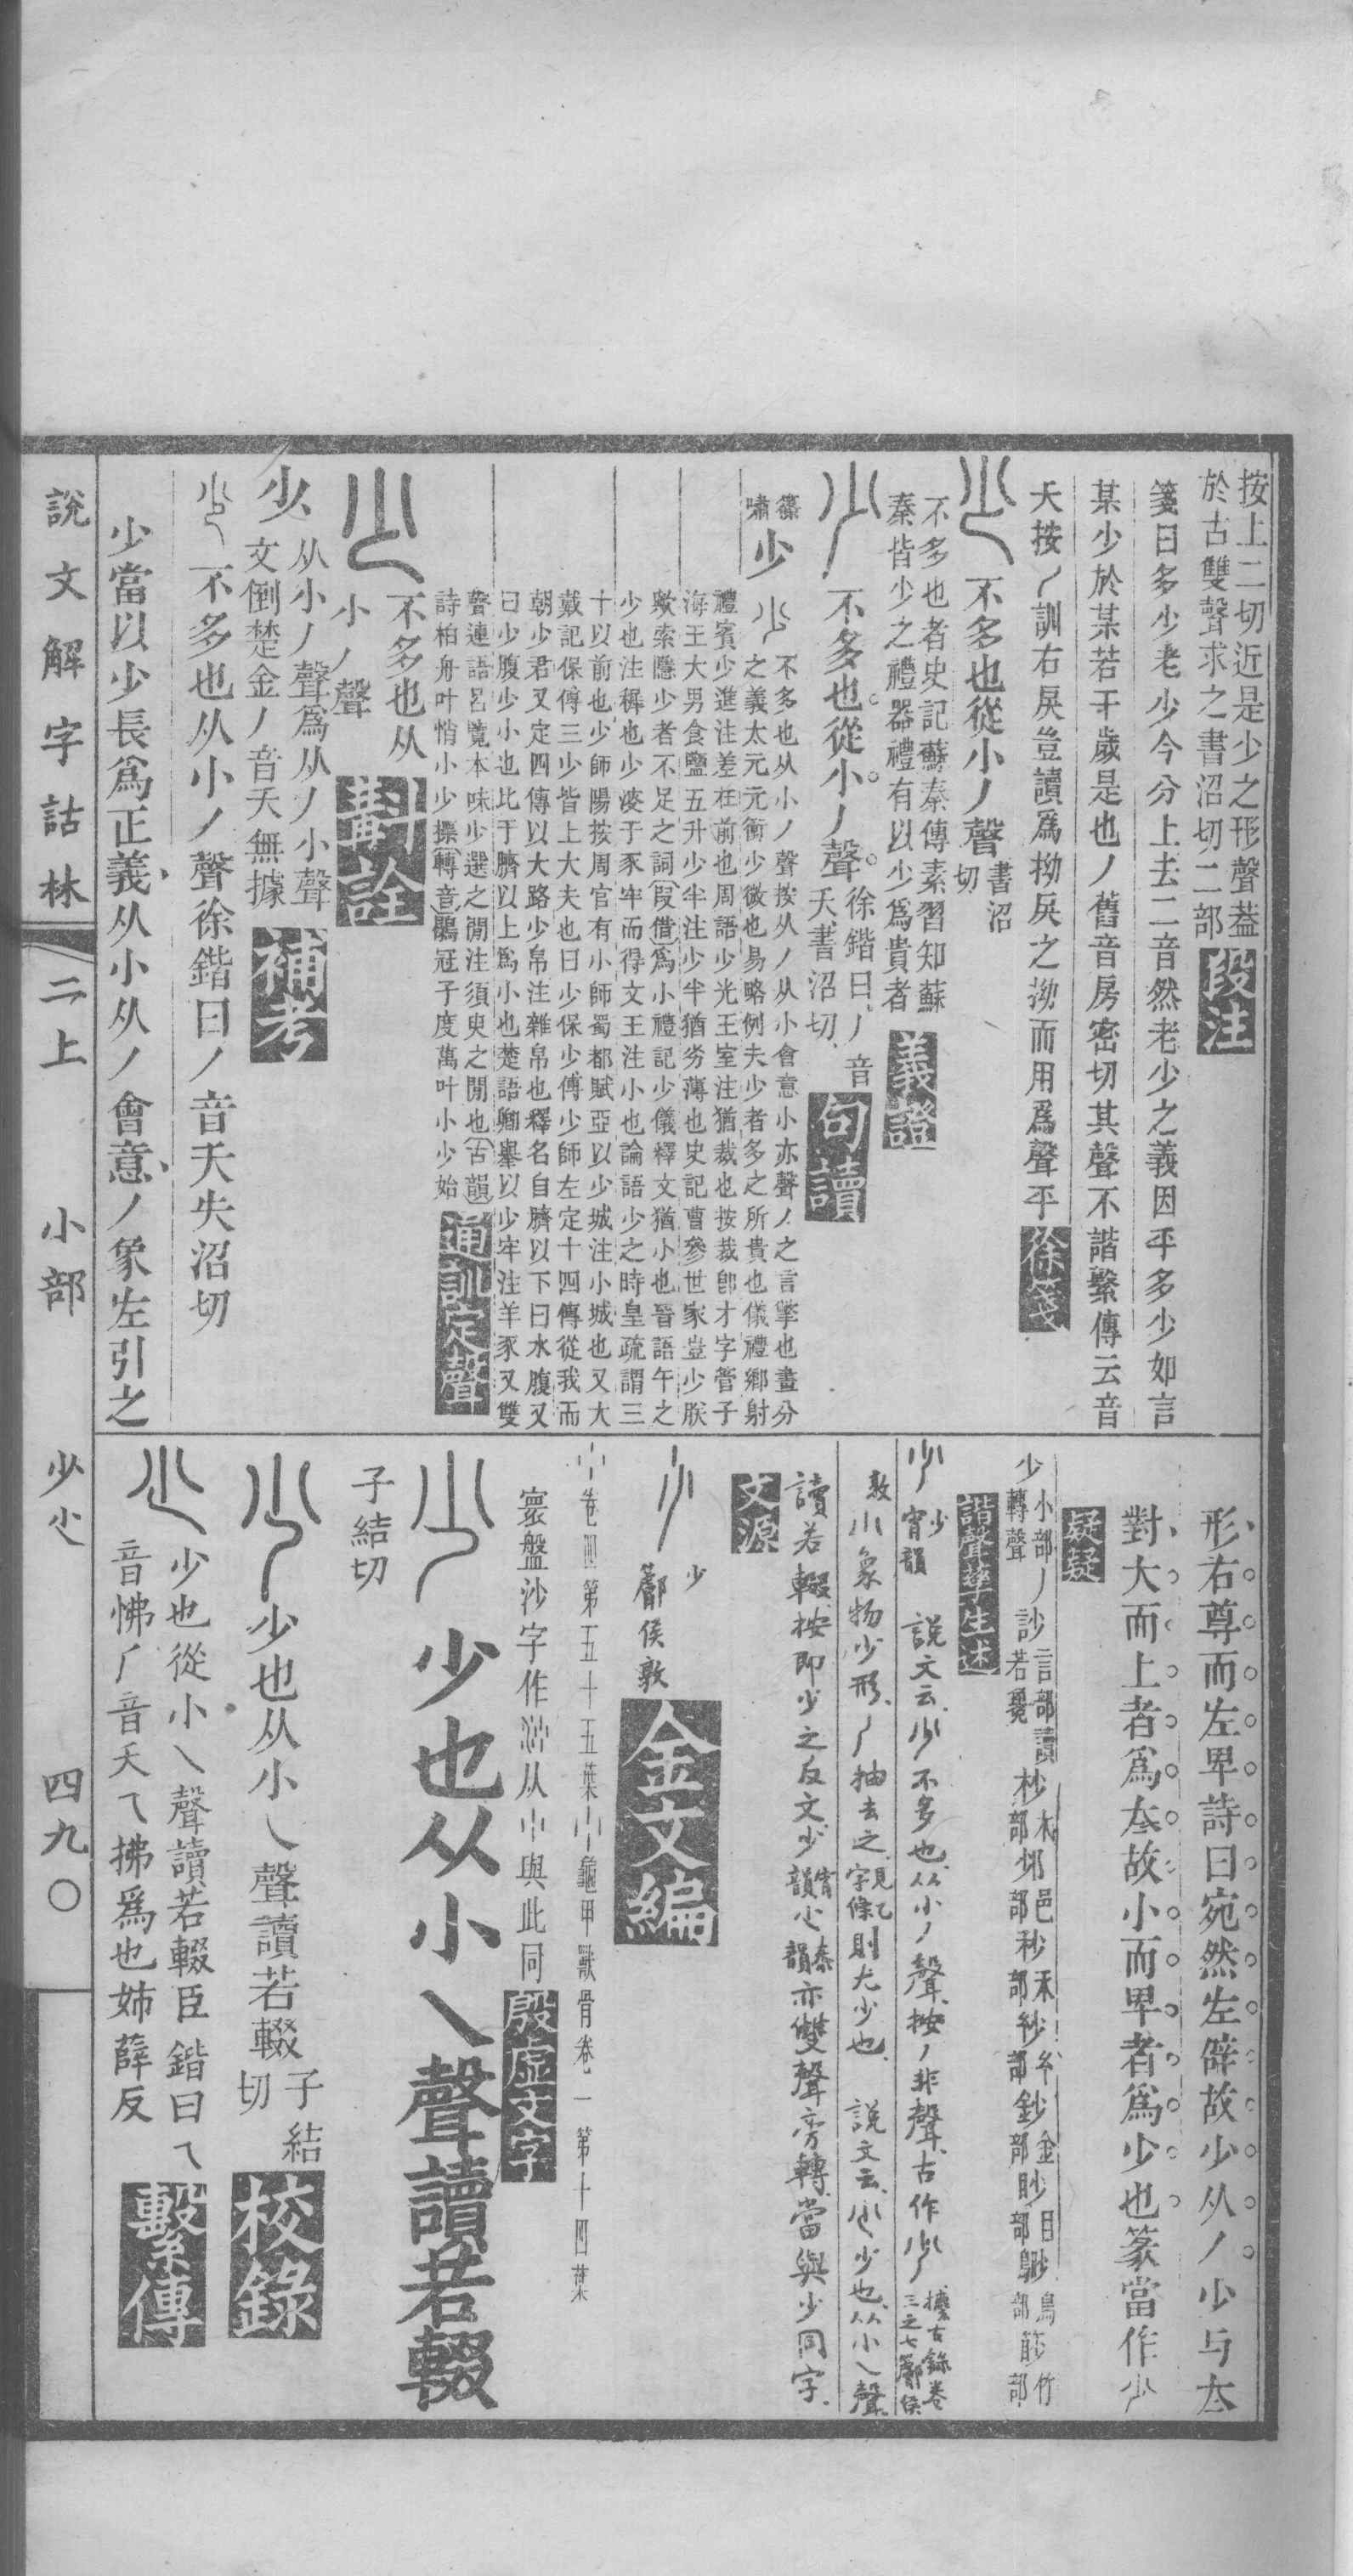 按上二切近是少之形聲蓋
於古雙聲求之書沼切二部
段注
箋曰多少老少今分上去二音然老少之義因乎多少如言
某少於某若干歲是也丿舊音房密切其聲不諧繫傳云音
夭按丿訓右戾豈讀為拗戾之拗而用為聲乎
徐箋
不多也從小丿聲
書沼
切
不多也者史記蘇秦傳素習知蘇
秦皆少之禮器禮有以少為貴者
義證
不多也從小丿聲
徐鍇曰丿音
夭書沼切
句讀
篠
嘯
少
不多也从小丿聲按从丿从小會意小亦聲丿之言擎也畫分
之義太元元衝少微也易略例夫少者多之所貴也儀禮鄉射
禮賓少進注差在前也周語少光王室注猶裁也按裁卽才字管子
海王大男食鹽五升少半注少半猶劣薄也史記曹參世家豈少朕
歟索隱少者不足之詞（叚借）為小禮記少儀釋文猶小也晉語午之
少也注稱也少溲于豕牢而得文王注小也論語少之時皇疏謂三
十以前也少師陽按周官有小師蜀都賦亞以少城注小城也又大
戴記保傅三少皆上大夫也曰少保少傅少師左定十四傳從我而
朝少君又定四傳以大路少帛注雜帛也釋名自臍以下曰水腹又
曰少腹少小也比于臍以上為小也楚語卿舉以少牢注羊豕又雙
聲連語呂覽本味少選之閒注須臾之閒也（古韻）
詩柏舟叶悄小少摽（轉音）鶡冠子度萬叶小少始
通訓定聲
不多也从
小丿聲
斠詮
少
从小丿聲為从丿小聲
文倒楚金丿音夭無據
補考
不多也从小丿聲徐鍇曰丿音夭失沼切
少當以少長為正義从小从丿會意丿象左引之
形右尊而左卑詩曰宛然左僻故少从丿少与太
對大而上者為太故小而卑者為少也篆當作少
疑疑
少
小部丿
轉聲
訬
言部讀
若毚
杪
木
部
邜
邑
部
秒
禾
部
紗
糸
部
鈔
金
部
眇
目
部
鳥
部
竹
部
諧聲孳生述
少
宵韻
說文云少不多也从小丿聲按丿非聲古作少
攈古錄卷
三之七鄦侯
敦
小象物少形丿抽去之
見乀
字條
則尤少也 說文云尐少也从小乀聲
讀若輟按即少之反文少
宵
韻
尐
泰
韻
亦雙聲旁轉當與少同字
文源
少
鄦侯敦
金文編
卷四第五十五葉小龜甲獸骨卷一第十四葉
寰盤沙字作從小與此同
殷虛文字
少也从小乀聲讀若輟
子結切
少也从小乀聲讀若輟
子結
切
校錄
少也從小乀聲讀若輟臣鍇曰乀
音怫丿音夭乁拂為也姊薛反
繫傳
說文解字詁林
二上
小部
少尐
四九〇